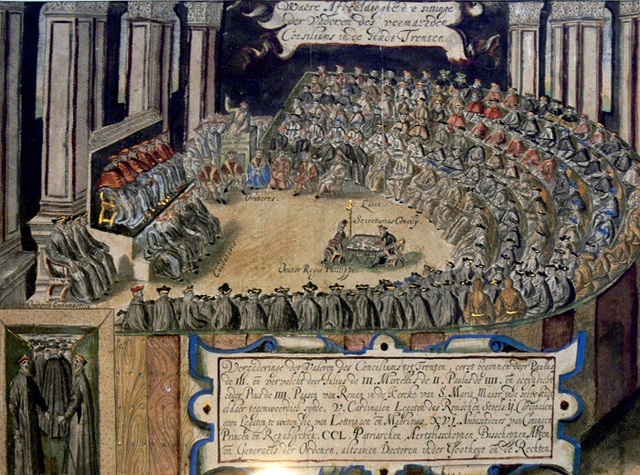 Waere Afbeeldinghe d'e sittinge
der Vaderen des vermaerden
Consiliums in de Stadt Trenten
Oratores
Laici
Secretarius Concilij
Orator Regis Philippi
Vergaderinge der Vaderen des Conciliums tot Trenten, eerst begonnen door Paulus
de III. en vervolcht door Julius de III. Marcellus de II. Paulus de IIII. en
onder Pius de IIII. Pausen van Romen in de Kercke van S. Maria Maior,
alder tegenwoordich synde, V. Cardinalen Legaten des Roomschen Stoels, ij. Cardinalen
geen Legaten te weten die van Lottringen en Madrutius, XVI. Ambassadeurs van Coningen
Princen en Republycken, CCL. Patriarchen Aertsbisschoppen, Bisschoppen, Abten,
en Generaels der Ordenen, altsamen Doctoren in der Godtheyt en de Rechten.